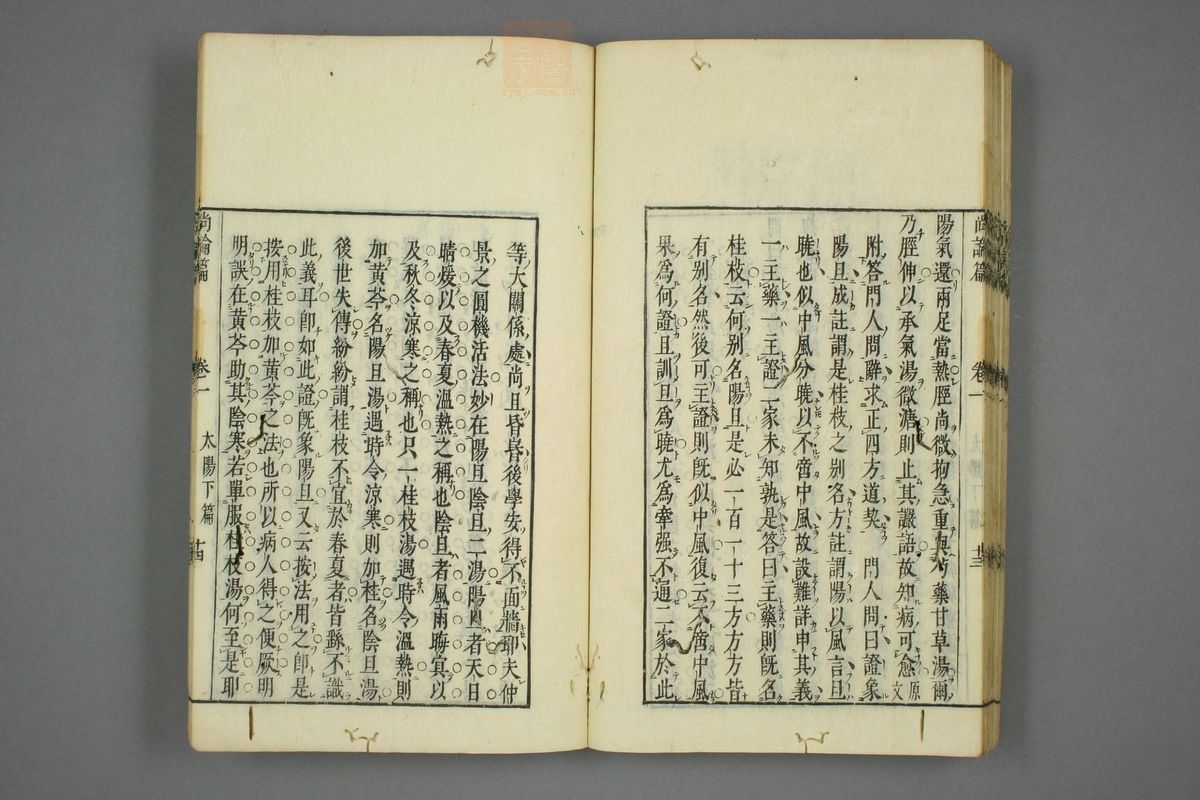 尚論篇 卷一 廿三
陽氣還兩足當熱脛尚微拘急重與芍藥甘草湯爾
乃脛伸以承氣湯微溏則止其譫語故知病可愈原文
附答門人問辭求正四方道契 門人問曰證象
陽旦成註謂是桂枝之别名方註謂陽以風言旦
曉也似中風分曉以不啻中風故設難詳申其義
一主藥一主證二家未知孰是答曰主藥則既名
桂枝云何别名陽旦是必一百一十三方方方皆
有别名然後可主證則既似中風復云不啻中風
果爲何證且訓旦爲曉尤爲牽强不通二家於此
等大關係處尚且昏昏後學安得不面牆耶夫仲
景之圓機活法妙在陽旦陰旦二湯陽旦者天日
晴煖以及春夏溫熱之稱也陰旦者風雨晦冥以
及秋冬涼寒之稱也只一桂枝湯遇時令溫熱則
加黄芩名陽旦湯遇時令涼寒則加桂名陰旦湯
後世失傳紛紛謂桂枝不宜於春夏者皆繇不識
此義耳即如此證既象陽旦又云按法用之即是
按用桂枝加黄芩之法也所以病人得之便厥明
明誤在黄芩助其陰寒若單服桂枝湯何至是耶
尚論篇 卷一 太陽下篇 廿四
zysj.com.cn